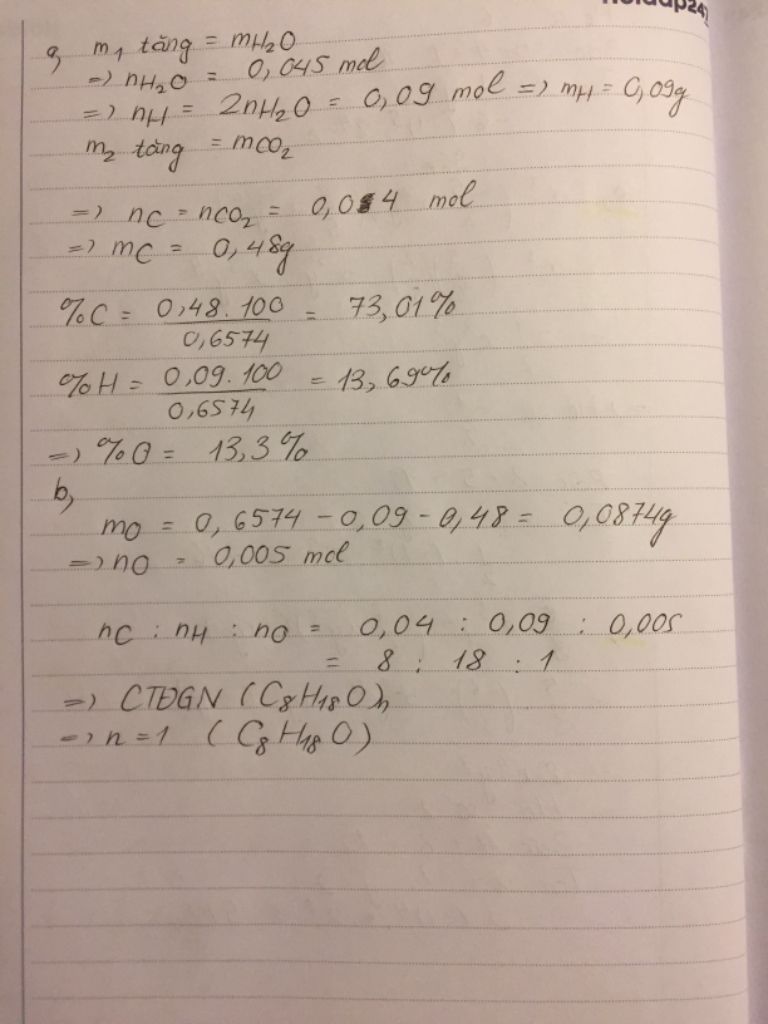 a, m₁ tăng = mH₂O
=> nH₂O = 0,045 mol
=> nH = 2nH₂O = 0,09 mol => mH = 0,09g
m₂ tăng = mCO₂
=> nC = nCO₂ = 0,04 mol
=> mC = 0,48g
%C = 0,48.100 / 0,6574 = 73,01%
%H = 0,09.100 / 0,6574 = 13,69%
=> %O = 13,3%
b,
mO = 0,6574 - 0,09 - 0,48 = 0,0874g
=> nO = 0,005 mol
nC : nH : nO = 0,04 : 0,09 : 0,005
= 8 : 18 : 1
=> CTĐGN (C₈H₁₈O)n
=> n = 1 (C₈H₁₈O)